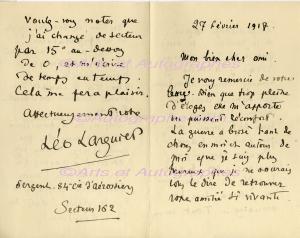 27 février 1918
Mon bien cher ami.
Je vous remercie de votre
livre. Bien que trop pleine
d'éloges elle m'apporte
un puissant réconfort.
La guerre a brisé tant de
choses en moi et autour de
moi que je suis plus
heureux que je ne saurais
vous le dire de retrouver
votre amitié si vivante.
Voulez-vous noter que
j'ai changé de secteur
par 15° au-dessous
de 0, et m'écrire
de temps en temps.
Cela me fera plaisir.
Affectueusement votre
Léo Larguier
Sergent. 84e Cie d'aérostiers
Secteur 162
© Arts et Autographes